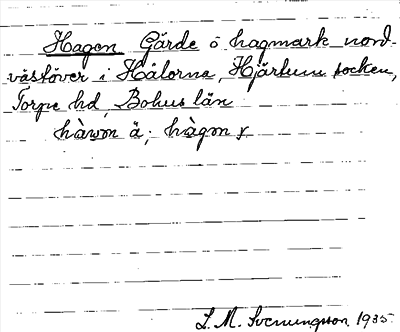 Hagen Gärde o hagmark nord-
väst över i Hålorna, Hjärtums socken,
Torpe hd, Bohus län
hàwon ä; hàgon y
L. M. Svenungsson 1935